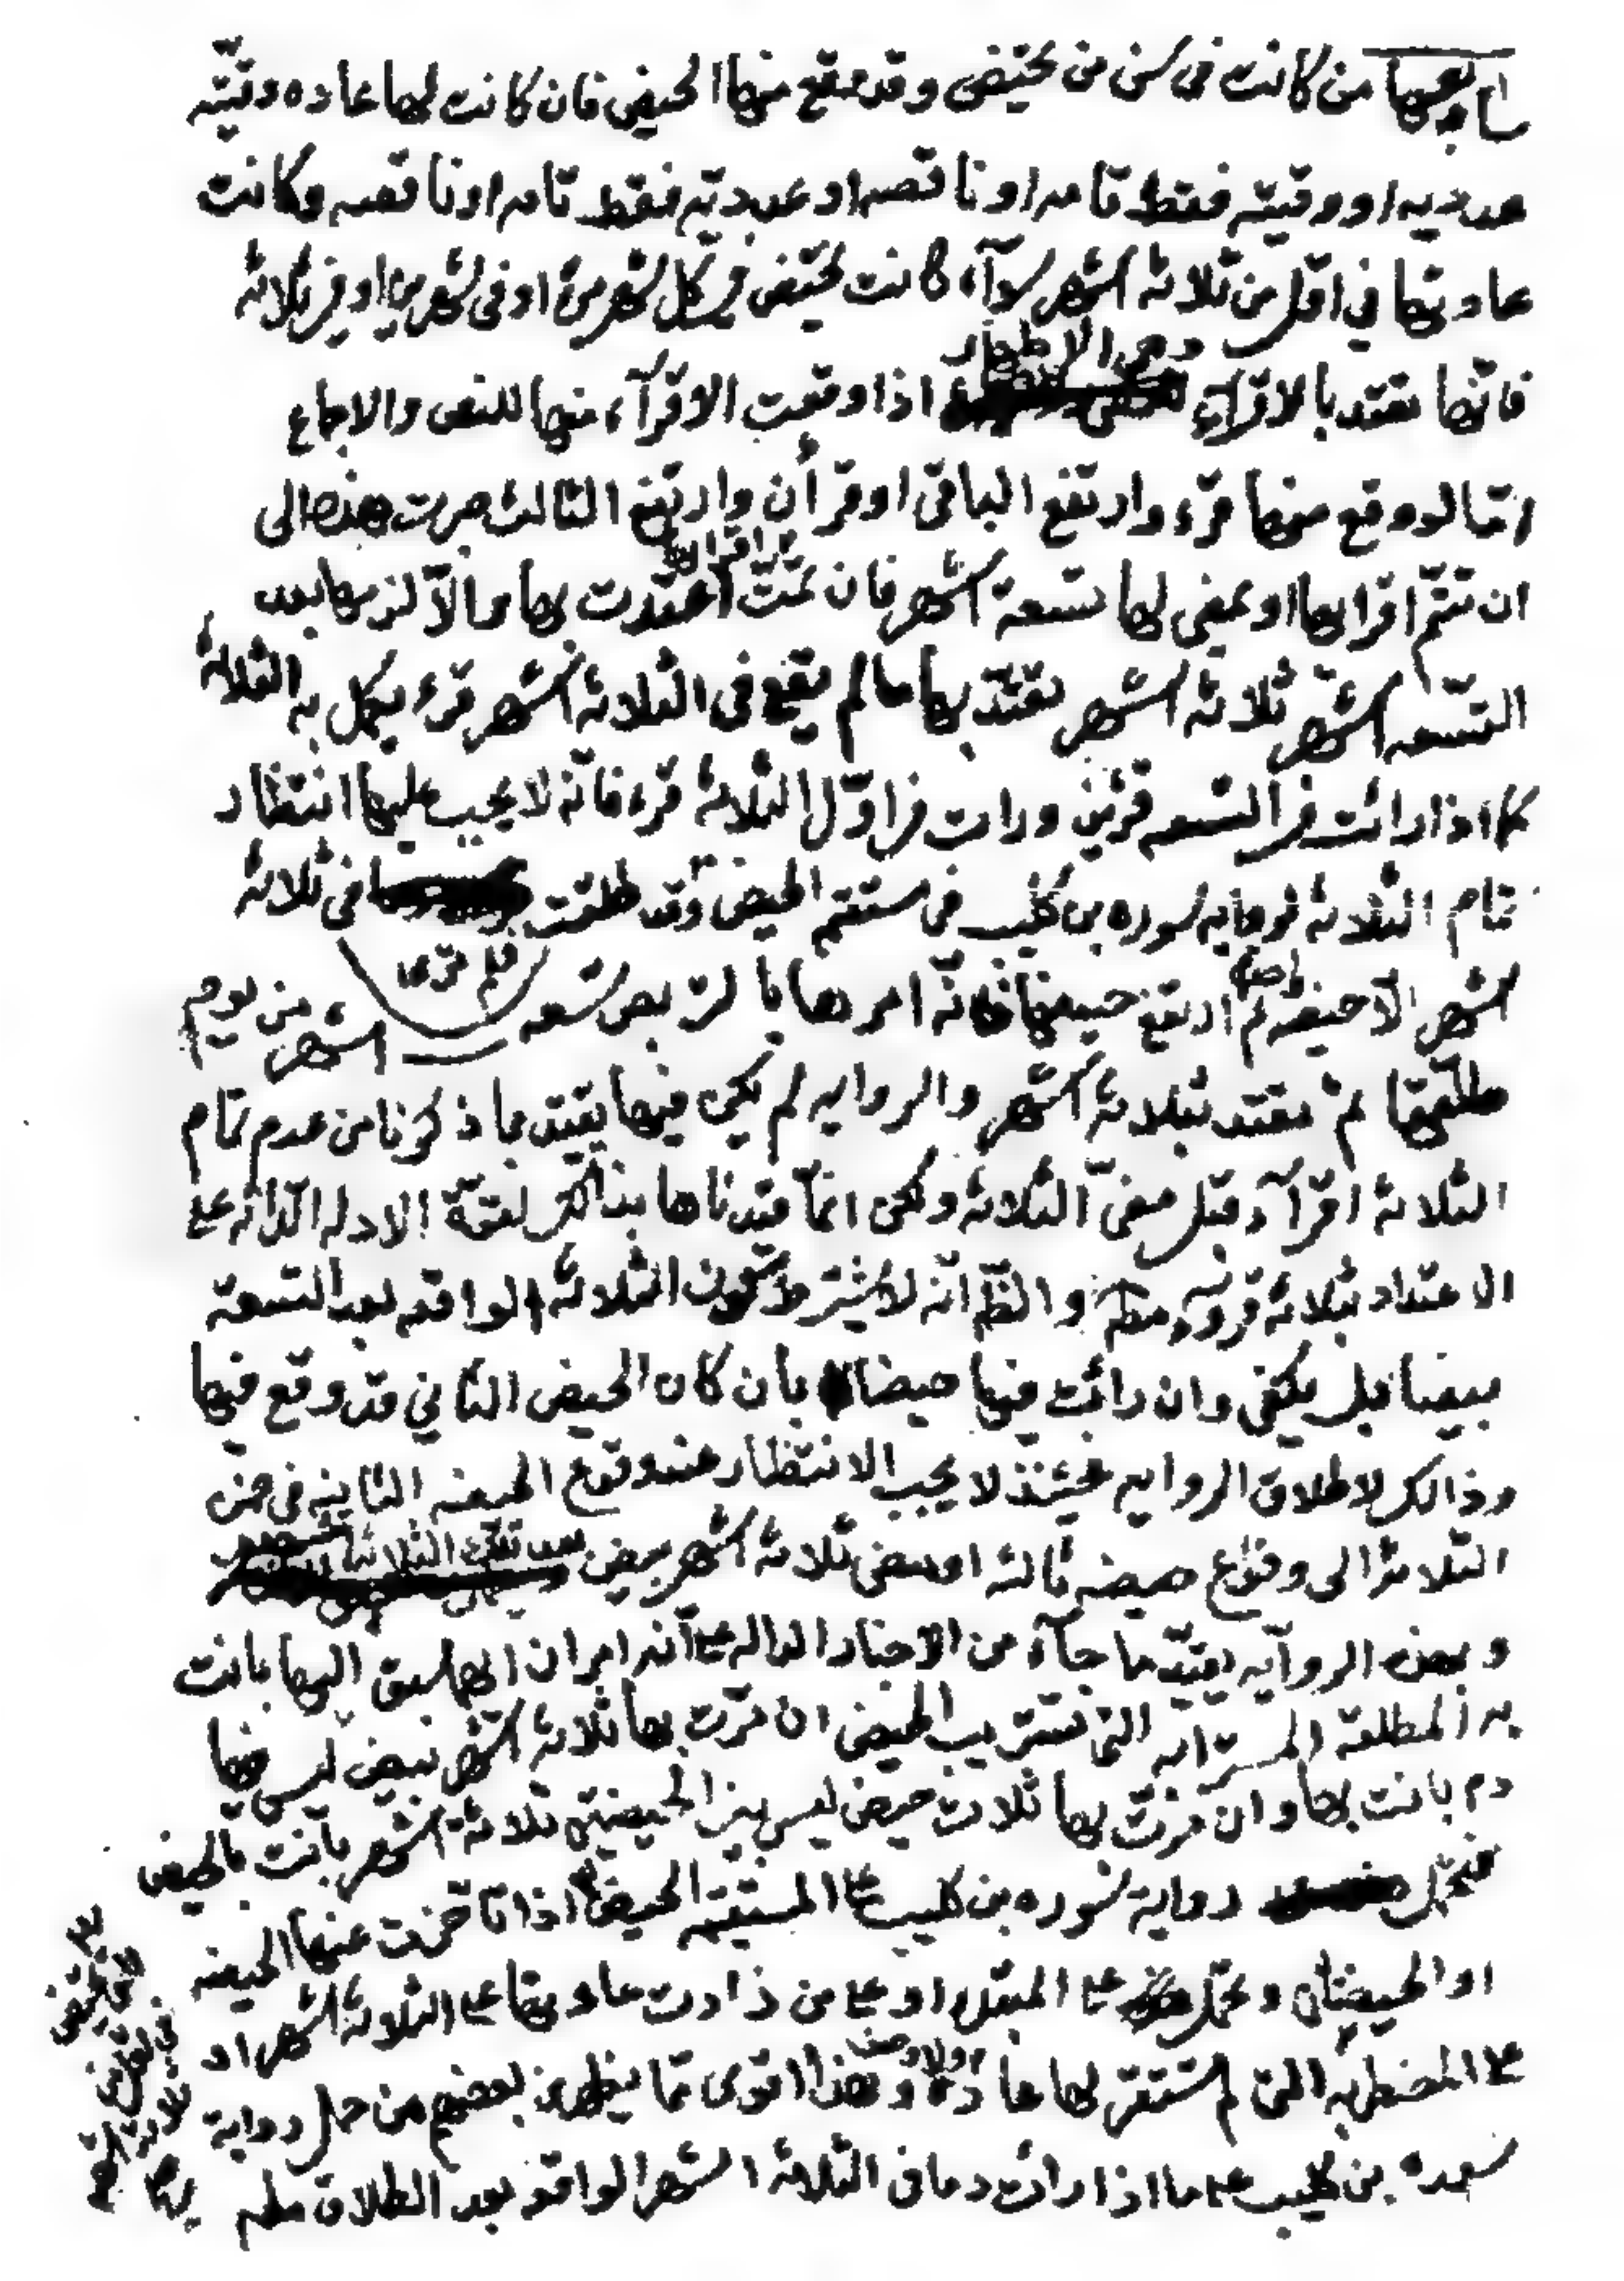 سابعها من كانت في سن من تحيض وقد يقع منها الحيض فان كانت لها عاده وقتيّه
عدديه او وقتيّه فقط تامه او ناقصه او عدديّه فقط تامه او ناقصه وكانت
عادتها في اقل من ثلاثة اشهر سوآء كانت تحيض في كل شهر مرة او في شهرين او في ثلاثة
فانّها تعتد بالاقرآء وهي الاطهار اذا وقعت الاقرآء منها للنص والاجماع
امّا لو وقع منها قرء وارتفع الباقي او قرأن وارتفع الثالث صبرت هذه الى
ان تتمّ اقرائها او يمضي لها تسعة اشهر فان تمّت الاقراء اعتدت بها والاّ لزمها بعد
التسعه اشهر ثلاثة اشهر تعتدّ بها ما لم يقع في الثلاثة اشهر قرء يكمل به الثلاثة
كما اذا رائت في التسعه قرئين ورات في اوّل الثلاثة قرء فانّه لا يجب عليها انتظار
تمام الثلاثة لروايه سوره بن كليب في مستقيم الحيض وقد طلقت فلم تر في ثلاثة
اشهر الاّ حيضه ثم ارتفع حيضها فانّه امرها بالتربص تسعه اشهر من يوم
طلّقها ثمّ تعتد بثلاثة اشهر والروايه لم يكن فيها تقييد بما ذكرنا من عدم تمام
الثلاثة اقرآء قبل مضيّ الثلاثة ولكن انّما قيدناها بذالك لقوّة الادله الدّالّه على
الاعتداد بثلاثة قروء مطـ والظّ انّه لا يشترط كون الثلاثة الواقعه بعد التسعة
بيضا بل يكفي وان رائت فيها حيضا بان كان الحيض الثاني قد وقع فيها
وذالك لاطلاق الروايه فحينئذ لا يجب الانتظار عند وقوع الحيضه الثانيه في ضمن
الثلاثة الى وقوع حيضه ثالثه او مضي ثلاثة اشهر بيض بعد تلك الثلاثة اشهر
وبهذه الروآيه يقيّد ما جآء من الاخبار الداله على انّه امران ايهما سبق اليها بانت
به المطلقة المسترابه التي تستريب الحيض ان مرّت بها ثلاثة اشهر بيض ليس فيها
دم بانت بها وان مرّت بها ثلاث حيض ليس بين الحيضتين ثلاثة اشهر بانت بالحيض
فتحمل رواية سوره بن كليب على المستقيمه الحيض اذا تاخرت عنها الحيضه
او الحيضتان وتحمل على المبتدئه او على من زادت عادتها على الثلاثة اشهر او
على المضطربه التي لم تستقر لها عادة وهذا اقوى ممّا يظهر من بعضهم من حمل رواية
سوره بن كليب على ما اذا رائت دما في الثلاثة اشهر الواقعه بعد الطلاق